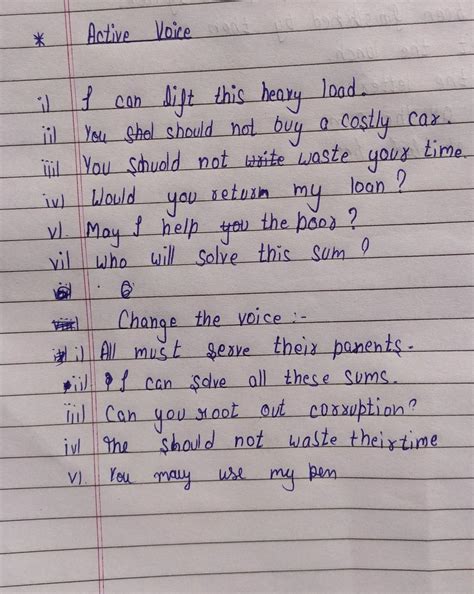 * Active Voice
i) I can lift this heavy load.
ii) You shol should not buy a costly car.
iii) You shouold not write waste your time.
iv) Would you return my loan?
v) May I help you the poor?
vi) who will solve this sum?
6
Change the voice :-
i) All must serve their parents.
ii) I can solve all these sums.
iii) Can you root out corruption?
iv) the should not waste their time
v) You may use my pen